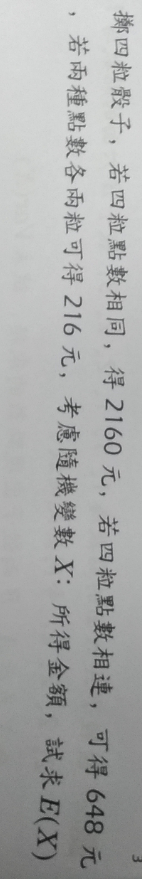 3
擲四粒骰子，若四粒點數相同，得 2160 元，若四粒點數相連，可得 648 元
，若兩種點數各兩粒可得 216 元，考慮隨機變數 X：所得金額，試求 E(X)